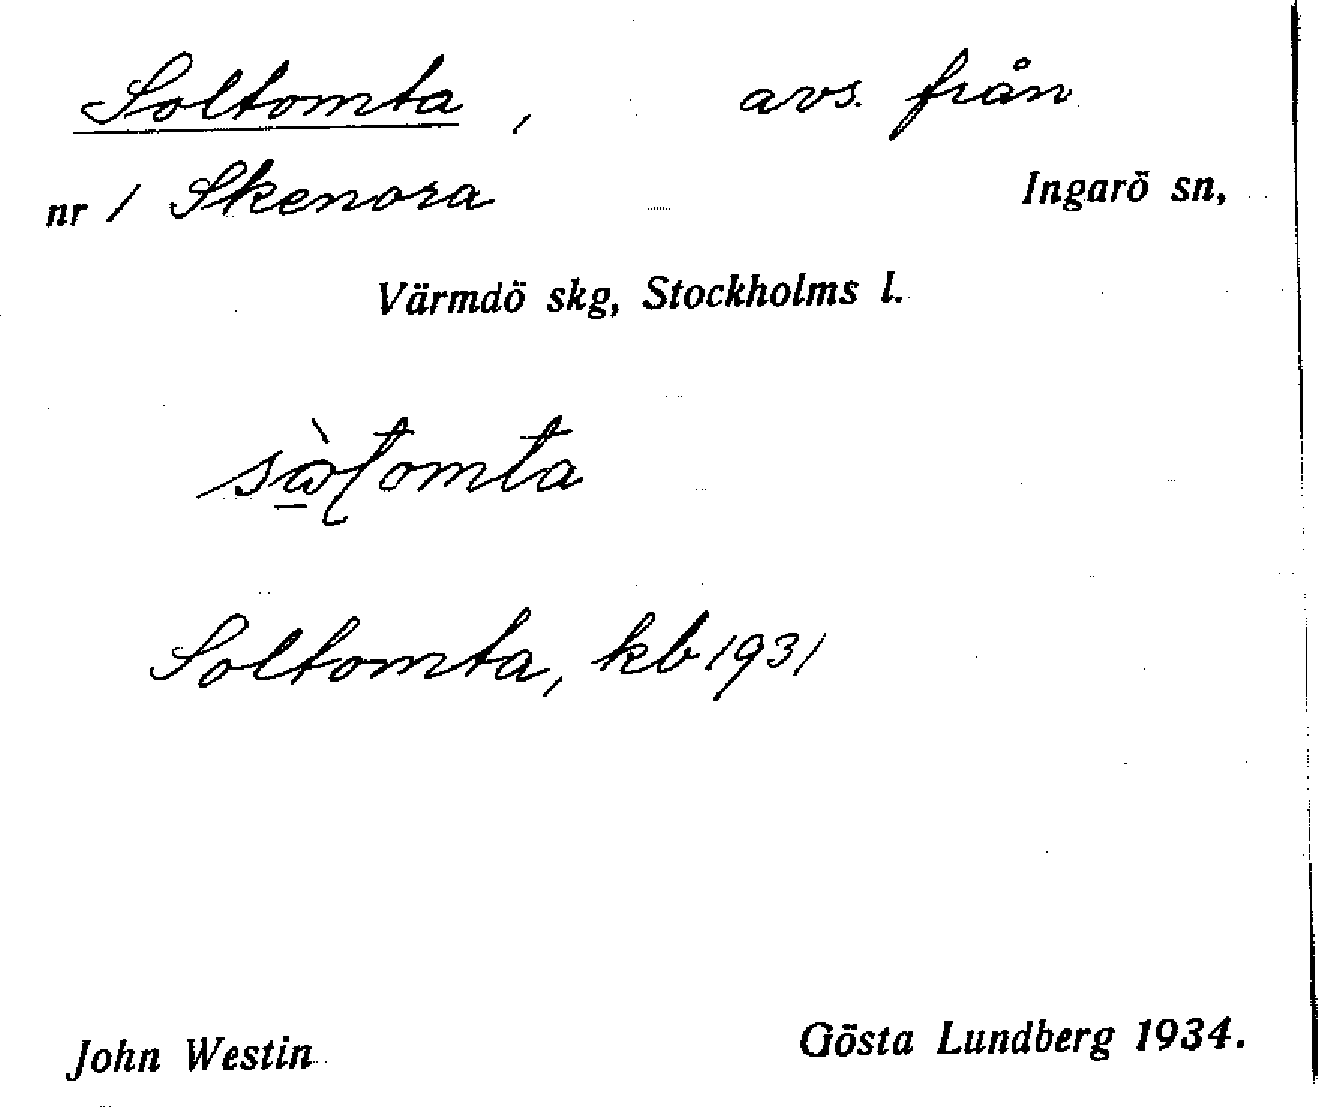 Soltomta, avs. från
nr 1 Skenora Ingarö sn,
Värmdö skg, Stockholms l.
Soltomta, kb 1931
John Westin Gösta Lundberg 1934.